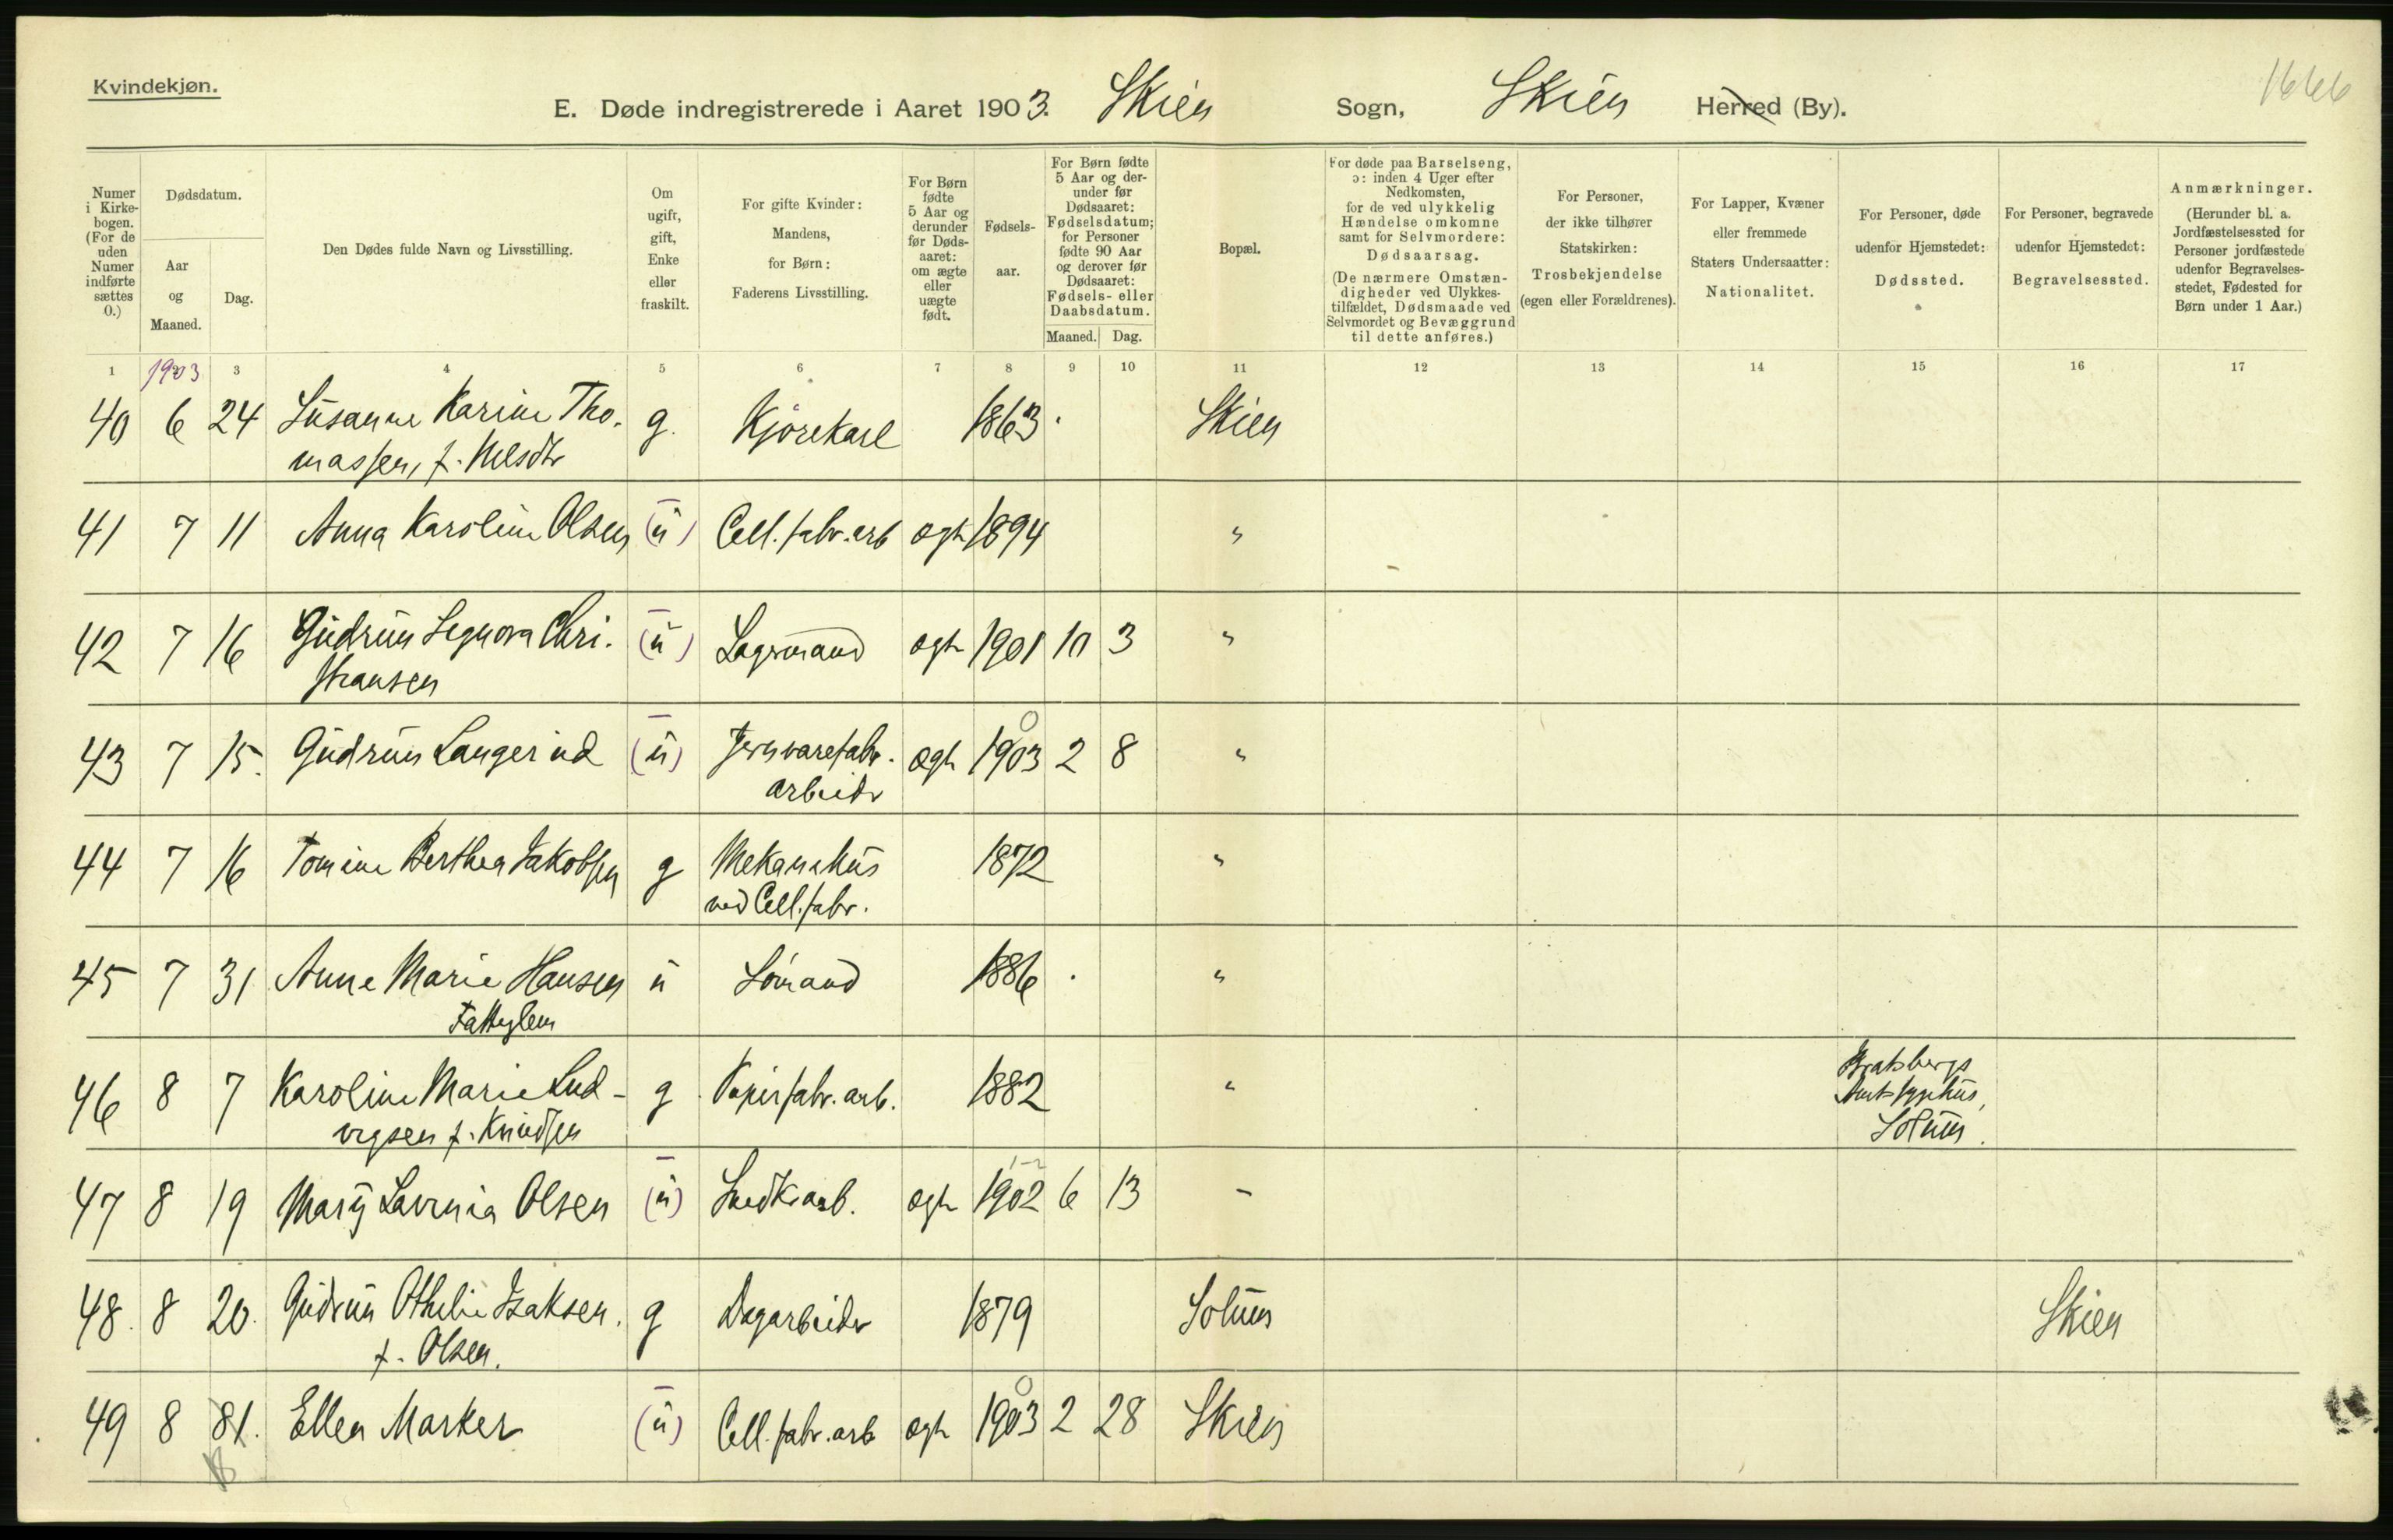 Kvindekjøn.
1666
E. Døde indregistrerede i Aaret 1903. Skien Sogn, Skien Herred (By).
Numer i Kirkebogen. (For de uden Numer indførte sættes 0.)
Dødsdatum.
Aar og Maaned.
Dag.
Den Dødes fulde Navn og Livsstilling.
Om ugift, gift, Enke eller fraskilt.
For gifte Kvinder: Mandens, for Børn: Faderens Livsstilling.
For Børn fødte 5 Aar og derunder før Dødsaaret: om ægte eller uægte født.
Fødselsaar.
For Børn fødte 5 Aar og derunder før Dødsaaret: Fødselsdatum; for Personer fødte 90 Aar og derover før Dødsaaret: Fødsels- eller Daabsdatum.
Maaned. Dag.
Bopæl.
For døde paa Barselseng, ɔ: inden 4 Uger efter Nedkomsten, for de ved ulykkelig Hændelse omkomne samt for Selvmordere: Dødsaarsag. (De nærmere Omstændigheder ved Ulykkestilfældet, Dødsmaade ved Selvmordet og Bevæggrund til dette anføres.)
For Personer, der ikke tilhører Statskirken: Trosbekjendelse (egen eller Forældrenes).
For Lapper, Kvæner eller fremmede Staters Undersaatter: Nationalitet.
For Personer, døde udenfor Hjemstedet: Dødssted.
For Personer, begravede udenfor Hjemstedet: Begravelsessted.
Anmærkninger. (Herunder bl. a. Jordfæstelsessted for Personer jordfæstede udenfor Begravelsesstedet, Fødested for Børn under 1 Aar.)
1 1903 3 4 5 6 7 8 9 10 11 12 13 14 15 16 17
40 6 24 Susanne Karine Tho- g. Kjørekarl 1863 Skien
massen, f. Nilsdtr
41 7 11 Anna Karoline Olsen (u) Cell.fabr.arb ægte 1894 "
42 7 16 Gudrun Legnora Chri- (u) Lagermand ægte 1901 10 3 "
stiansen
43 7 15. Gudrun Langerud (u) Jernvarefabr. ægte 1903 2 8 "
arbeider
44 7 16 Tomine Berthea Jakobsen g Mekanikus 1872 "
ved Cell.fabr.
45 7 31 Anne Marie Hansen u Lømand 1886 "
Fattiglem
46 8 7 Karoline Marie Lud- g Papirfabr. arb. 1882 " Bratsbergs
Amtssygehus,
vigsen f. Knudsen Solum.
47 8 19 Mary Lavinia Olsen (u) arb. ægte 1902 6 13 -
48. 8 20. Gudrun Othilie Isaksen. g Dagarbeider 1879 Solum Skien
f. Olsen.
49 8 31. Ellen Marker (u) Cell.fabr.arb ægte 1903 2 28 Skien